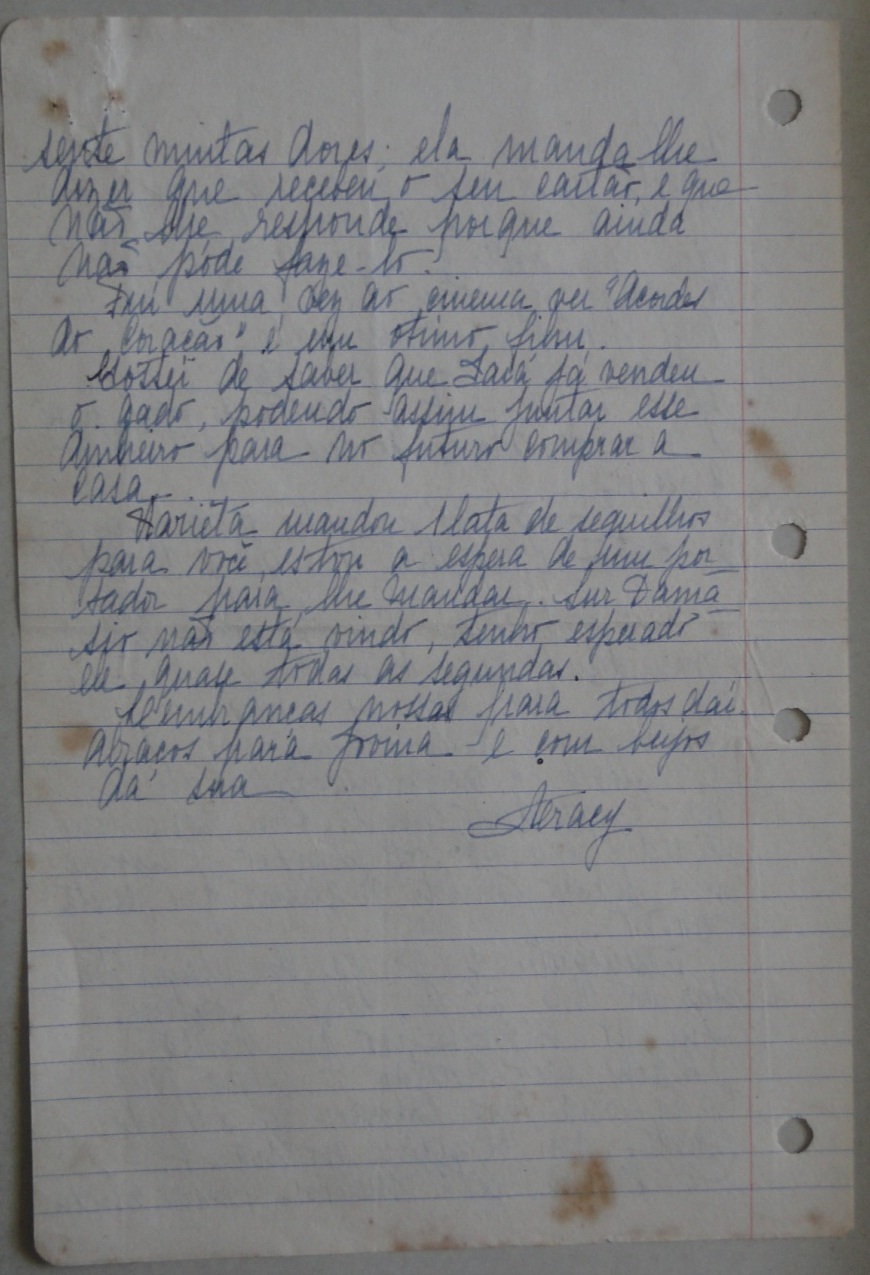 sente muitas dores; ela manda lhe
dizer que recebeu o seu cartão, e que
não lhe responde porque ainda
não póde faze-lo.
Fui uma vez ao cinema ver "Acordes
do Coração" é um otimo filme.
Gostei de saber que já vendeu
o gado, podendo assim juntar esse
dinheiro para no futuro comprar a
casa.
Marieta mandou 1 lata de sequilhos
para você, estou a espera de um por
tador para lhe mandar. Snr Damá
sio não está vindo, tenho esperado
ele quase todas as segundas.
Lembranças nossas para todos daí.
Abraços para e com beijos
da sua
Aracy